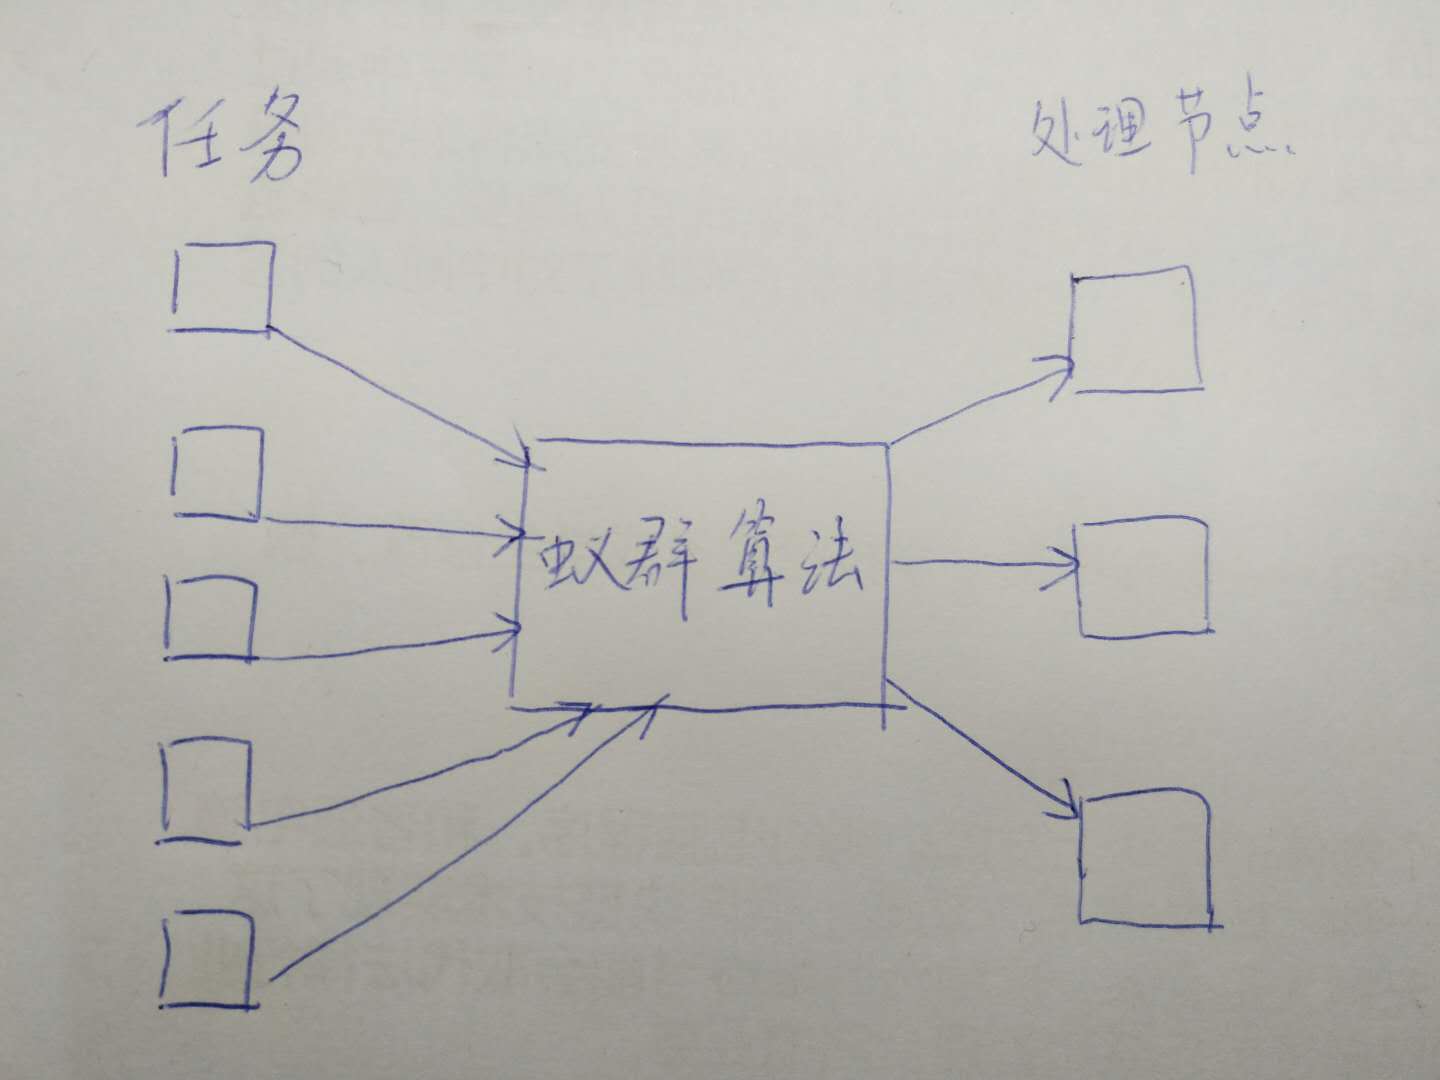 任务
处理节点
蚁群算法